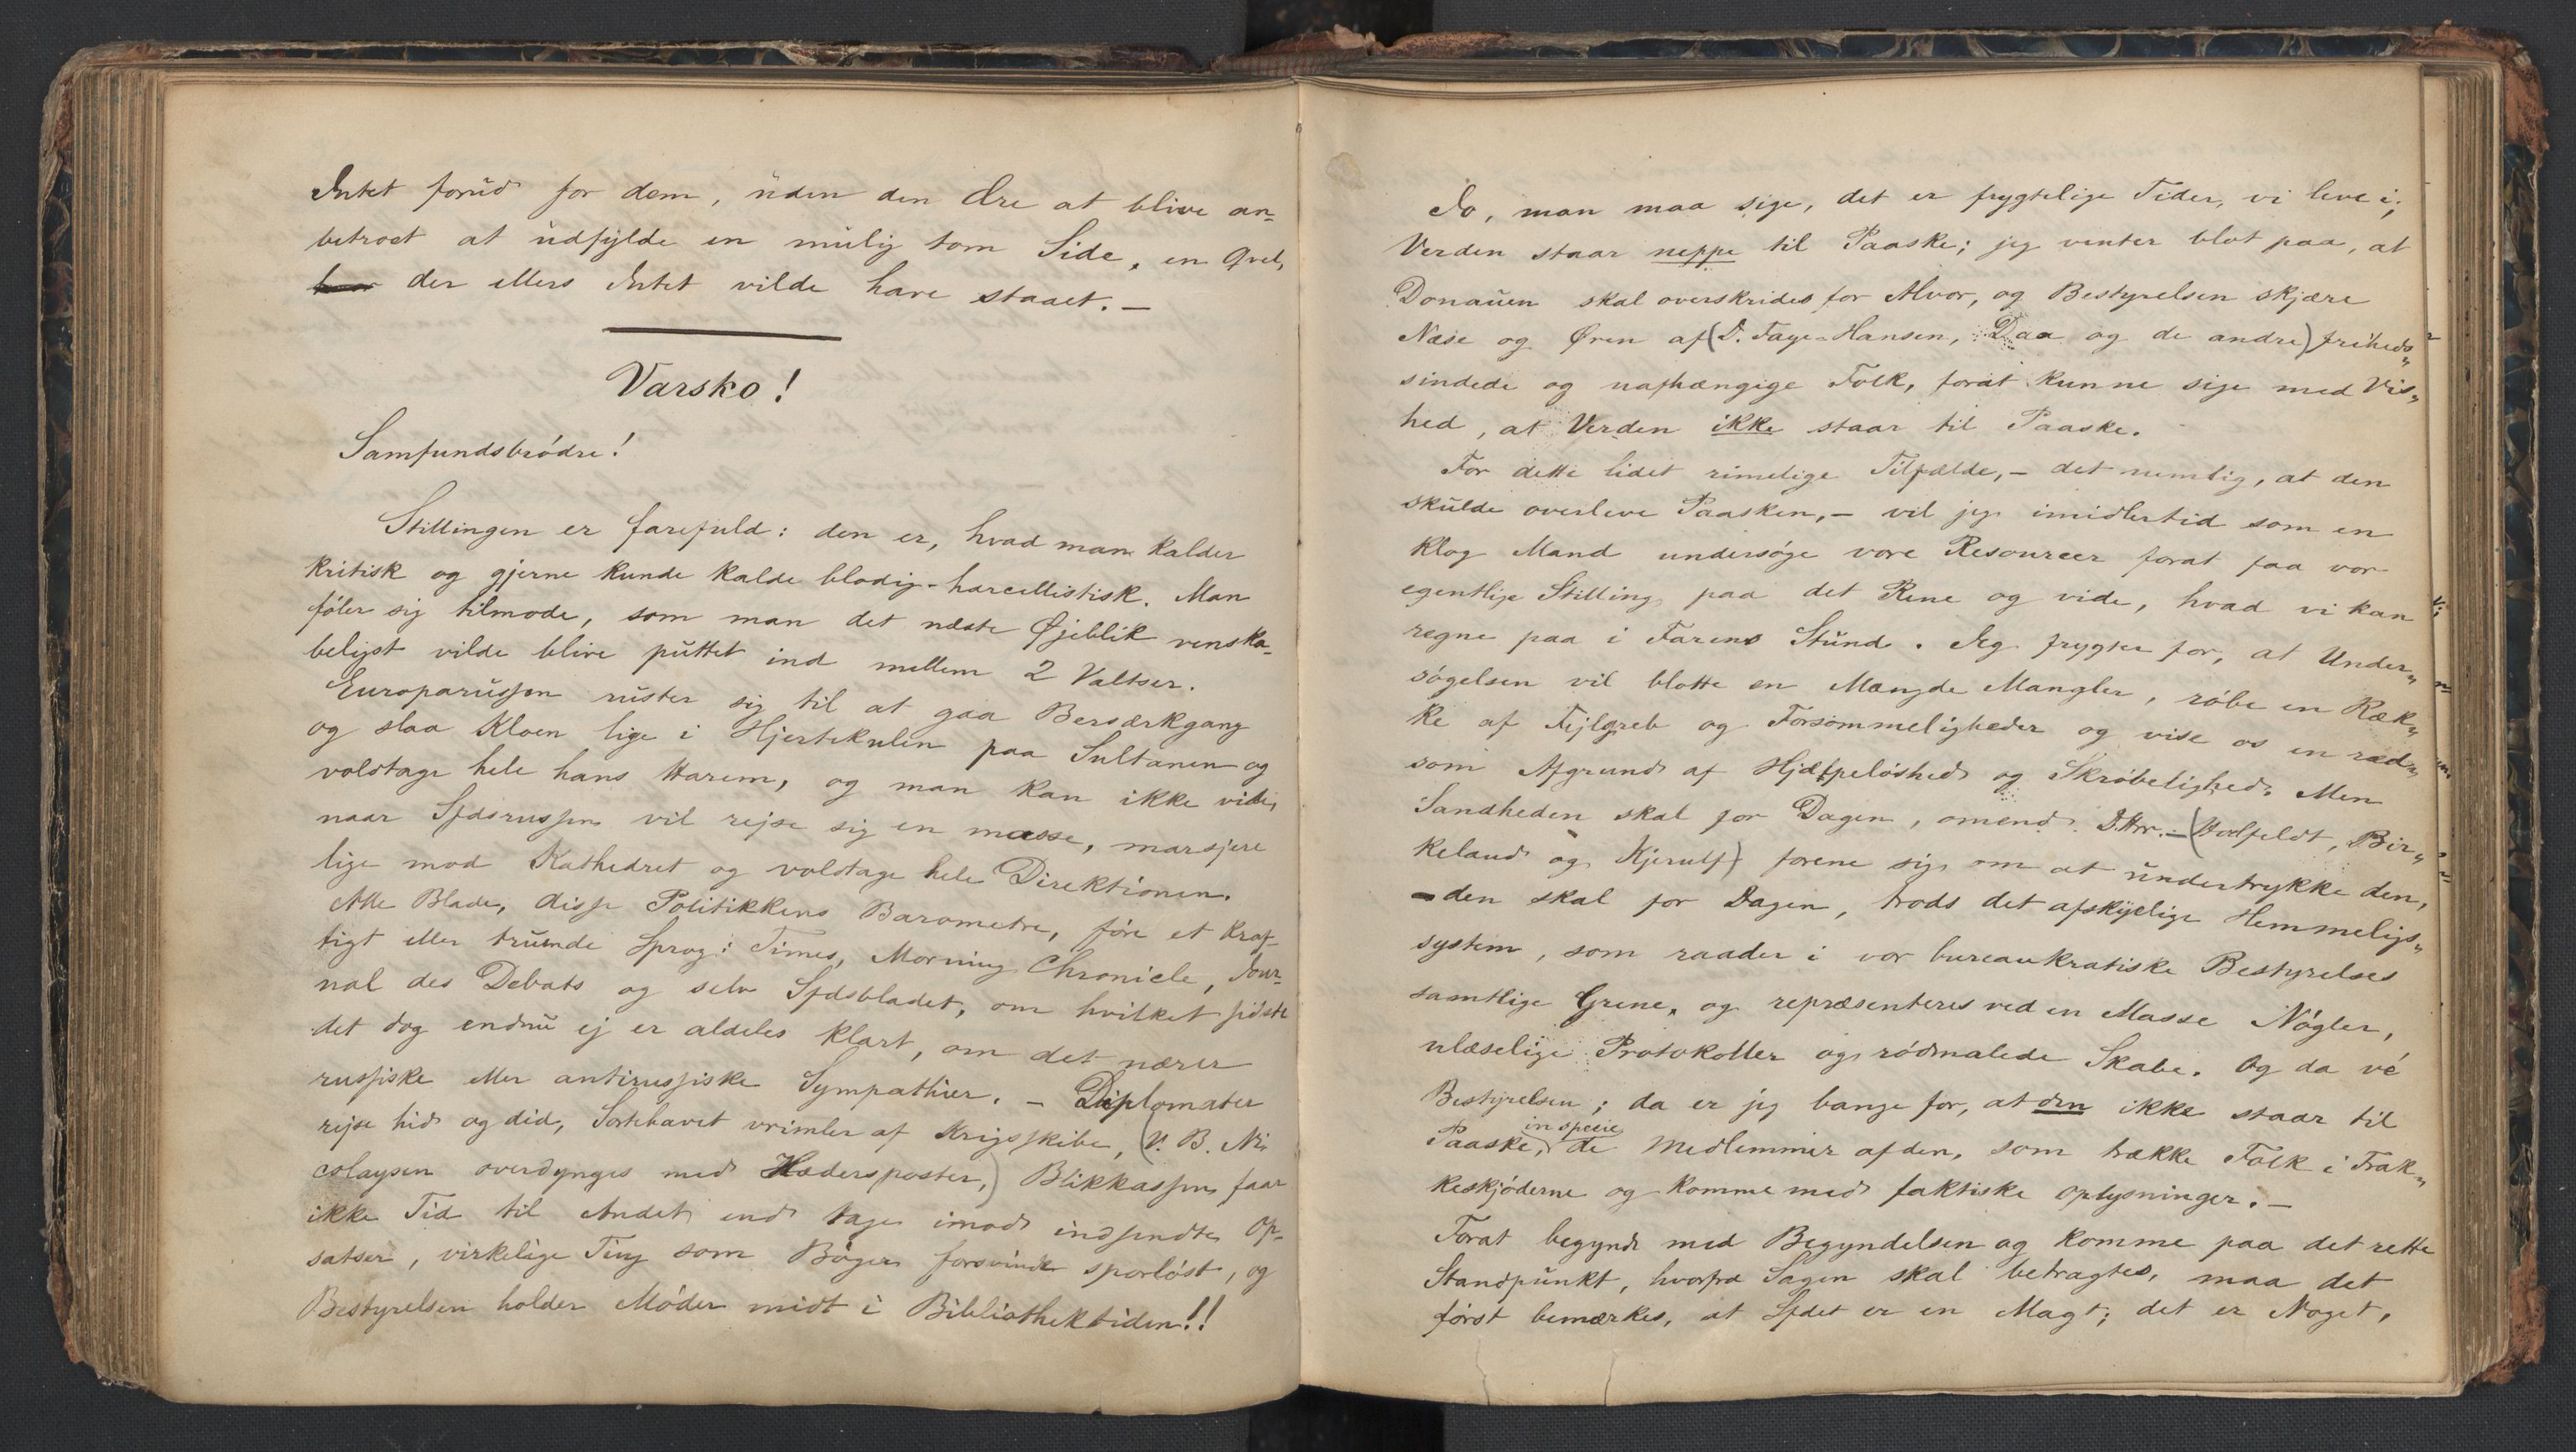 Intet forud for dem, uden den Ære at blive an-
betroet at udfylde en mulig tom Side, en Qvel,
der ellers Intet vilde have staaet. —
Varsko!
Samfundsbrödre!
Stillingen er farefuld: den er, hvad man kalder
kritisk og gjerne kunde kalde blodig-harcellistisk. Man
föler sig tilmode, som man det næste Øjeblik venska-
beligst vilde blive puttet ind mellem 2 Valtser.
Europarussen ruster sig til at gaa Bersærkgang
og slaa Kloen lige i Hjertekulen paa Sultanen og
voldtage hele hans Harem, og man kan ikke vide,
naar Sfdsrussen vil rejse sig en masse, marsjere
lige mod Kathedret og voldtage hele Direktionen.
Alle Blade, disse Politikkens Barometre, före et kraf-
tigt eller truende Sprog: Times, Morning Chronicle, Jour-
nal des Debats og selv Sfdsbladet, om hvilket sidste
det dog endnu ej er aldeles klart, om det nærer
russiske eller antirussiske Sympathier. — Diplomater
rejse hid og did, Sortehavet vrimler af Krigsskibe, (V. B. Ni-
colaysen overdynges med Hædersposter,) Blikkassen faar
ikke Tid til Andet end tage imod indsendte Op-
satser, virkelige Ting som Böger forsvinde sporlöst, og
Bestyrelsen holder Möder midt i Bibliothektiden!!
Jo, man maa sige, det er frygtelige Tider, vi leve i;
Verden staar neppe til Paaske; jeg venter blot paa, at
Donauen skal overskrides for Alvor, og Bestyrelsen skjære
Næse og Øren af (D. Faye-Hansen, Daa og de andre) friheds„
sindede og uafhængige Folk, forat kunne sige med Vis„
hed, at Verden ikke staar til Paaske.
For dette lidet rimelige Tilfælde, — det nemlig, at den
skulde overleve Paasken, — vil jeg imidlertid som en
klog Mand undersöge vore Resourcer forat faa vor
egentlige Stilling paa det Rene og vide, hvad vi kan
regne paa i Farens Stund. Jeg frygter for, at Under„
sögelsen vil blotte en Mængde Mangler, röbe en Ræk„
ke af Fejlgreb og Forsömmeligheder og vise os en ræd„
som Afgrund af Hjælpelöshed og Skröbelighed. Men
Sandheden skal for Dagen, omend D.Hrr. — (Holfeldt, Bir„
keland og Kjerulf) forene sig om at undertrykke den,
den skal for Dagen, trods det afskyelige Hemmeligs„
system, som raader i vor bureaukratiske Bestyrelses
samtlige Grene, og repræsenteres ved en Masse Nögler,
ulæselige Protokoller og rödmalede Skabe. Og da vé
Bestyrelsen; da er jeg bange for, at den ikke staar til
Paaske, in specie de Medlemmer af den, som trække Folk i Frak„
keskjöderne og komme med faktiske Oplysninger. —
Forat begynde med Begyndelsen og komme paa det rette
Standpunkt, hvorfra Sagen skal betragtes, maa det
först bemærkes, at Sfdet er en Magt; det er Noget,